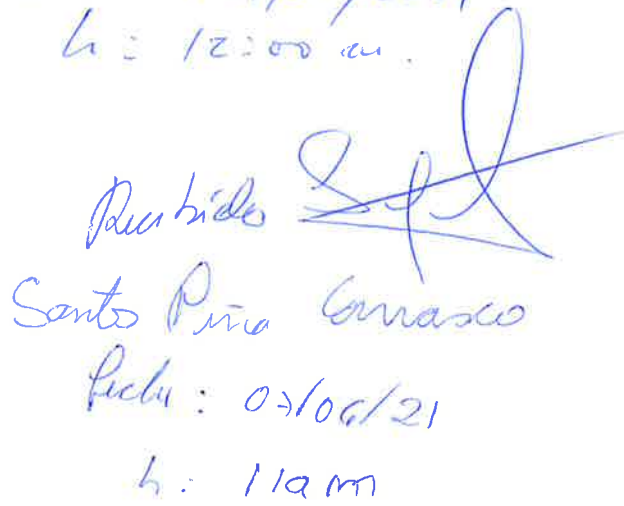 h: 12:00 m.
Recibido
Santos Piña Carrasco
fecha: 07/06/21
h: 11am